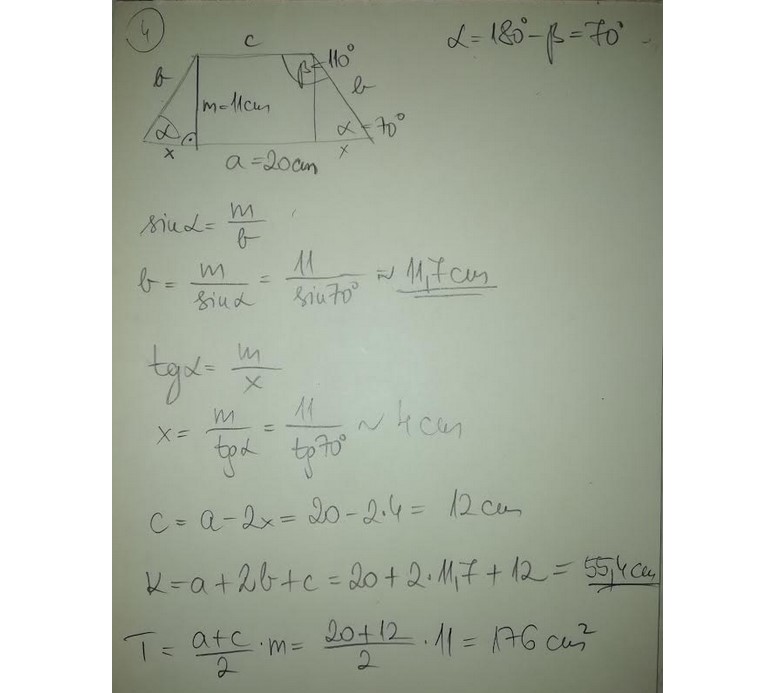 4
α = 180° - β = 70°
c
β = 110°
b
b
m = 11cm
α
α = 70°
x
x
a = 20cm
sinα = m/b
b = m/sinα = 11/sin70° ≈ 11,7cm
tgα = m/x
x = m/tgα = 11/tg70° ~ 4cm
c = a - 2x = 20 - 2·4 = 12cm
K = a + 2b + c = 20 + 2·11,7 + 12 = 55,4cm
T = a+c/2 · m = 20+12/2 · 11 = 176 cm²